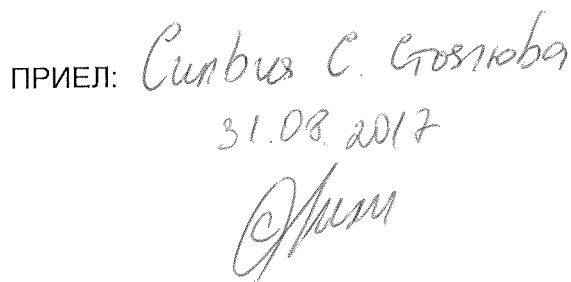 ПРИЕЛ: Силвия С. Стоянова
31.08.2017